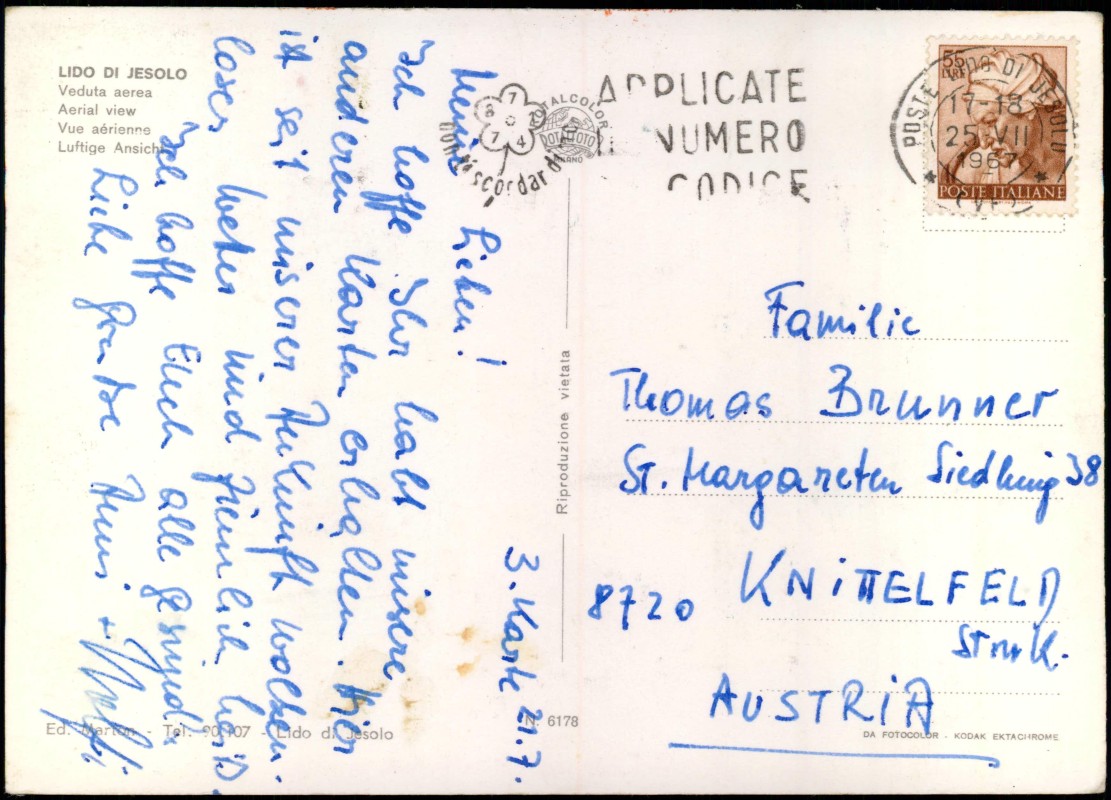 LIDO DI JESOLO
Veduta aerea
Aerial view
Vue aérienne
Luftige Ansicht
3. Karte 21.7.
Meine Lieben!
Ich hoffe Ihr habt unsere
anderen Karten erhalten. Hier
ist seit unserer Ankunft wolken-
loses Wetter und ziemlich heiß.
Ich hoffe Euch alle gesund.
Liebe Grüße
ROTALCOLOR
ROTALFOTO
MILANO
non ti scordar di
APPLICATE
NUMERO
CODICE
55
LIRE
POSTE ITALIANE
POSTE LIDO DI JESOLO
17-18
25 VII
1967
(VE)
Familie
Thomas Brunner
St. Margareten Siedlung 38
8720 KNITTELFELD
Stmk.
AUSTRIA
Riproduzione vietata
Ed. Marton - Tel. 90107 - Lido di Jesolo
N. 6178
DA FOTOCOLOR - KODAK EKTACHROME